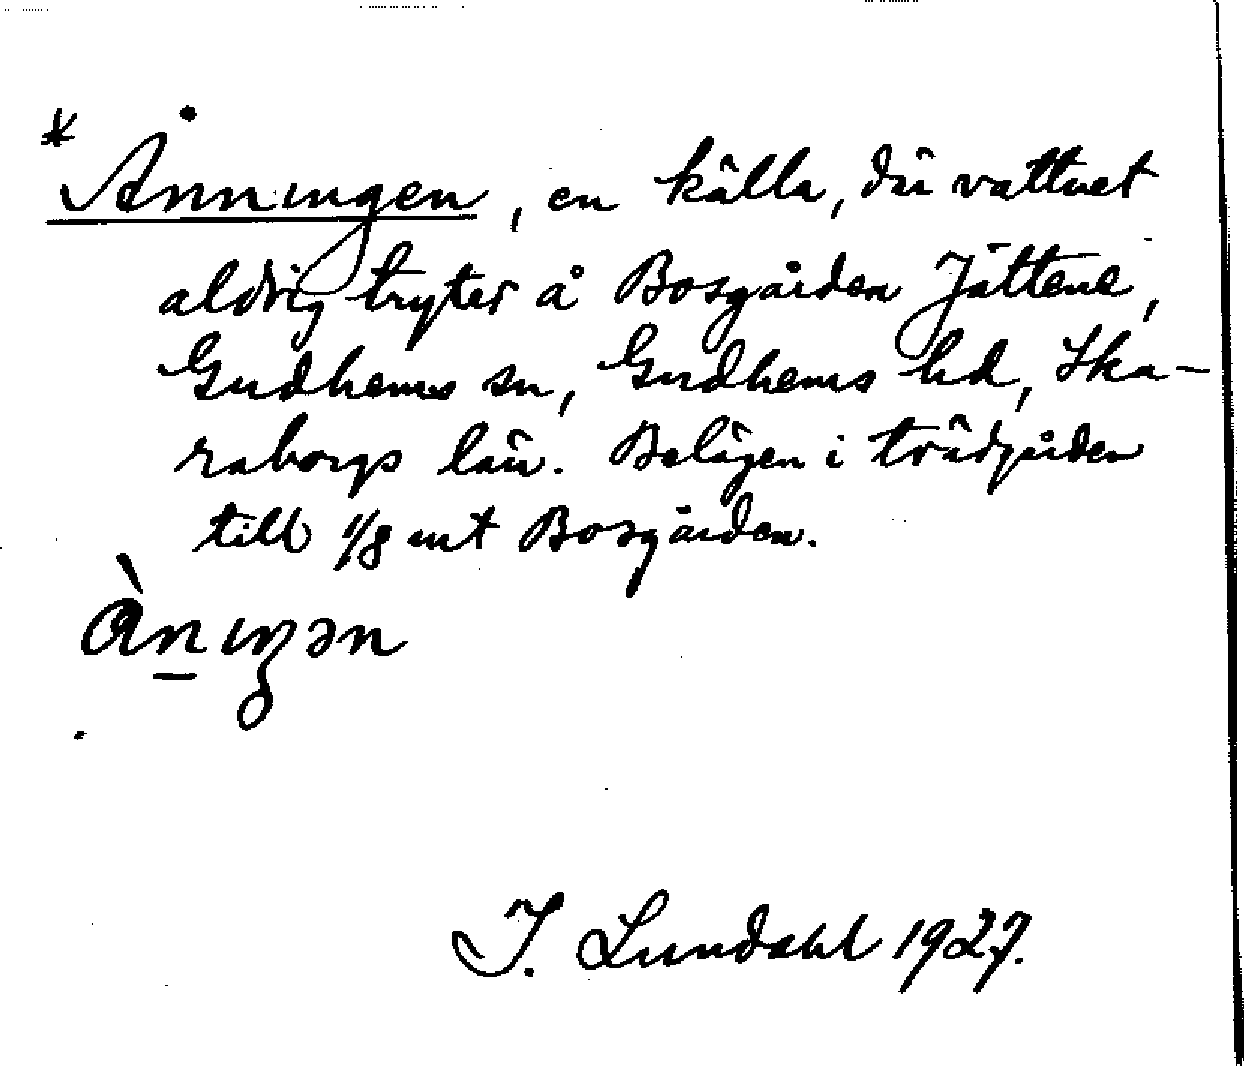 * Ånningen, en källa, där vattnet
aldrig tryter å Bosgården Jättene,
Gudhems sn, Gudhems hd, Ska-
raborgs län. Belägen i trädgården
till 1/8 mt Bosgården.
Ånιŋən
I. Lundahl 1927.